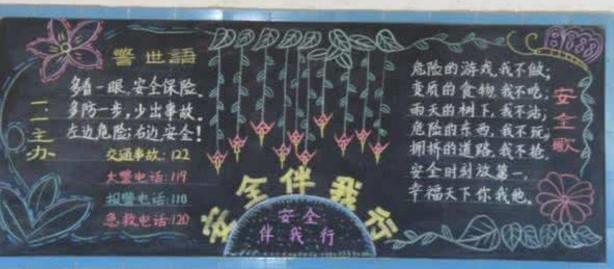 警世語
多看一眼,安全保险。
多防一步,少出事故。
左边危险;右边安全!
交通事故:122
火警电话:119
报警电话:110
急救电话:120
二一主办
安全伴我行
安全
伴我行
安全歌
危险的游戏我不做;
变质的食物,我不吃;
雨天的树下,我不站;
危险的东西,我不玩;
拥挤的道路,我不抢.
安全时刻放第一,
幸福天下你我他。